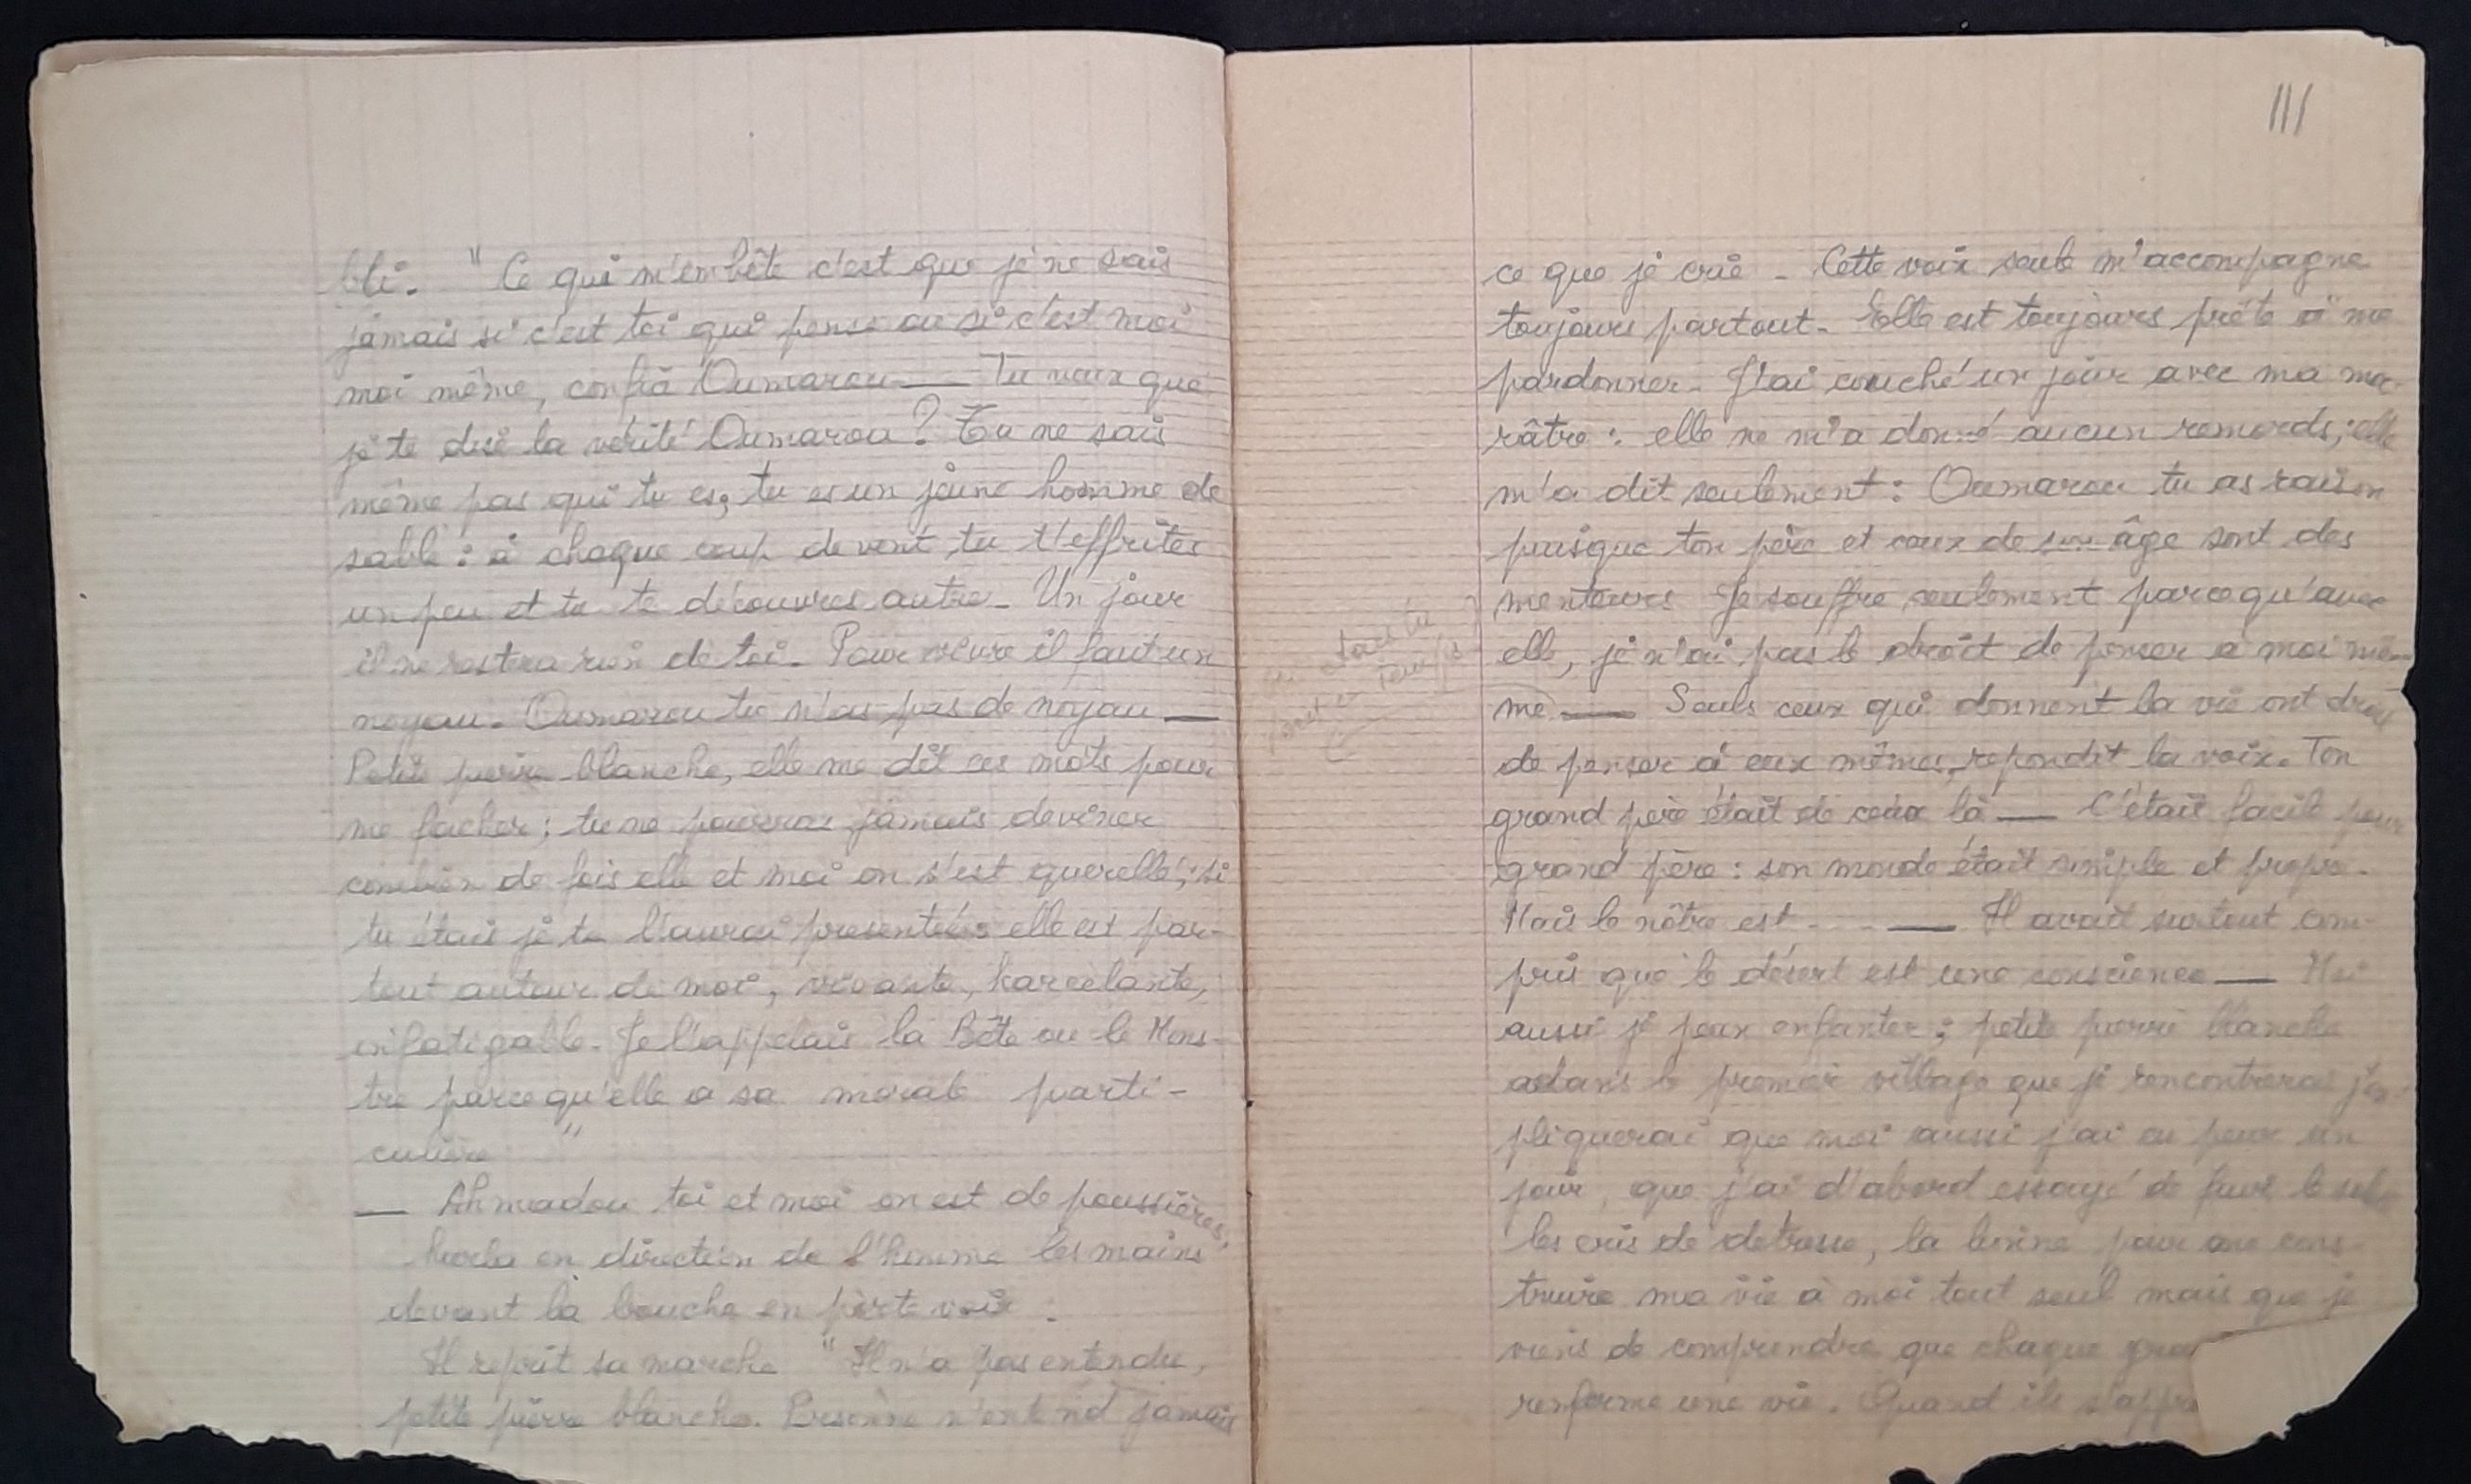 bli. " Ce qui m'embête c'est que je ne sais
jamais si c'est toi qui pense ou si c'est moi
moi même, confia Oumarou — Tu veux que
je te dise la vérité Oumarou ? Tu ne sais
même pas qui tu es, tu es un jeune homme de
sable : à chaque coup de vent tu t'effrites
un peu et tu te découvres autre. Un jour
il ne restera rien de toi. Pour vivre il faut un
noyau. Oumarou tu n'as pas de noyau —
Petite pierre blanche, elle me dit ces mots pour
me facher ; tu ne pourras jamais deviner
combien de fois elle et moi on s'est querellé ; si
tu étais je te l'aurai presentée elle est par-
tout autour de moi, vivante, harcelante,
infatigable. Je l'appelais la Bête ou le Mons-
tre parce qu'elle a sa morale parti-
culière "
— Ahmadou toi et moi on est de poussières,
hurla en direction de l'homme les mains
devant la bouche en porte voix.
Il reprit sa marche " Il n'a pas entendu,
petite pierre blanche. Personne n'entend jamais
111
ce que je crie - Cette voix seule m'accompagne
toujours partout. Elle est toujours prête à me
pardonner. J'ai couché un jour avec ma ma-
râtre : elle ne m'a donné aucun remords ; elle
m'a dit seulement : Oumarou tu as raison
puisque ton père et ceux de son âge sont des
menteurs Je souffre seulement parce qu'avec
elle, je n'ai pas le droit de penser à moi mê-
me — Seuls ceux qui donnent la vie ont droit
de penser à eux mêmes, repondit la voix. Ton
grand père était de ceux là — C'était facile pour
grand père : son monde était simple et propre.
Mais le nôtre est .... — Il avait surtout com-
pris que le désert est une conscience — Moi
aussi je peux enfanter ; petite pierre blanche
dans le premier village que je rencontrerai j'ex-
pliquerai que moi aussi j'ai eu peur un
jour, que j'ai d'abord essayé de fuir le
les cris de detresse, la haine pour me cons-
truire ma vie à moi tout seul mais que je
viens de comprendre que chaque
renferme une vie. Quand ils